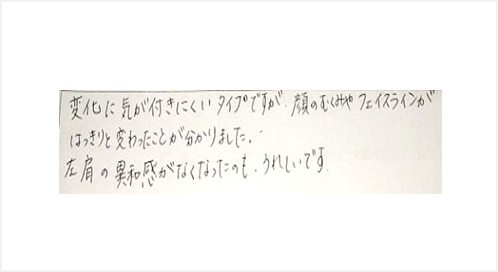 変化に気が付きにくいタイプですが、顔のむくみやフェイスラインが
はっきりと変わったことが分かりました。
左肩の異和感がなくなったのも、うれしいです。